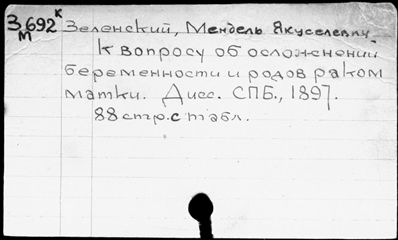 З692 к Зеленский, Мендель Якуселевич.
М
К вопросу об осложнении
беременности и родов раком
матки. Дисс. СПБ., 1897.
88 стр. с табл.